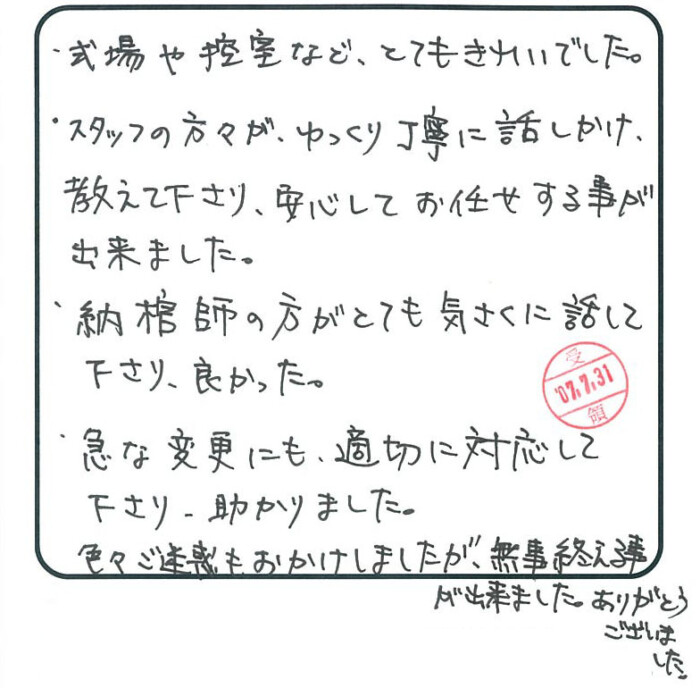 ・式場や控室など、とてもきれいでした。
・スタッフの方々が、ゆっくり丁寧に話しかけ、
教えて下さり、安心してお任せする事が
出来ました。
・納棺師の方がとても気さくに話して
下さり、良かった。
受
'07.7.31
領
・急な変更にも、適切に対応して
下さり、助かりました。
色々ご迷惑もおかけしましたが、無事終える事
が出来ました。ありがとう
ございま
した。